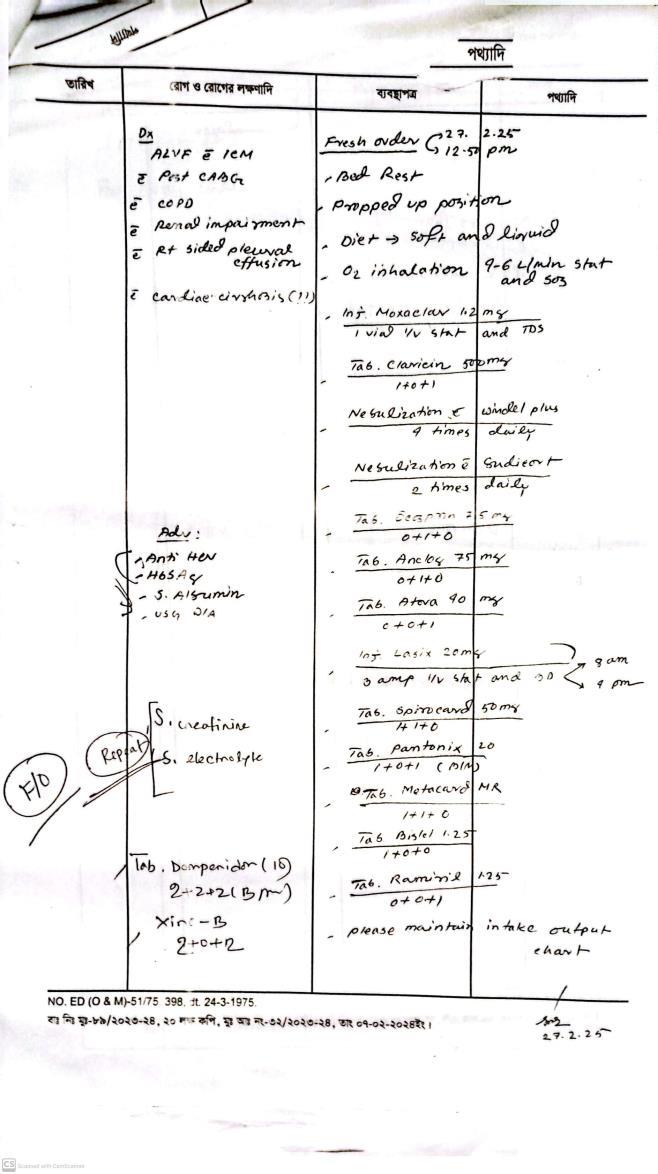 পথ্যাদি
তারিখ
রোগ ও রোগের লক্ষণাদি
ব্যবস্থাপত্র
পথ্যাদি
Dx
ALVF c̄ ICM
c̄ Post CABG
c̄ COPD
c̄ Renal impairment
c̄ Rt sided pleural
effusion
c̄ cardiac cirrhosis (!!)
Adv:
- Anti HCV
- HBSAg
- S. Albumin
- USG W/A
F/O
Repeat
S. creatinine
S. electrolyte
Tab. Domperidon (10)
2+2+2 (B/m)
Xinc-B
2+0+2
Fresh order 27. 2.25
12.50 pm
- Bed Rest
- Propped up position
- Diet → soft and liquid
- O2 inhalation 4-6 L/min stat
and sos
- Inj. Moxaclav 1.2 mg
1 vial I/V stat and TDS
- Tab. Claricin 500mg
1+0+1
- Nebulization c̄ windel plus
4 times daily
- Nebulization c̄ Budicort
2 times daily
- Tab. 75 mg
0+1+0
- Tab. Anclog 75 mg
0+1+0
- Tab. Atova 40 mg
0+0+1
- Inj. Lasix 20mg
3 amp I/V stat and BD
8 am
4 pm
- Tab. Spirocard 50mg
1+1+0
- Tab. Pantonix 20
1+0+1 (B/M)
- Tab. Metacard MR
1+1+0
- Tab Bislol 1.25
1+0+0
- Tab. Ramiril 1.25
0+0+1
- please maintain intake output
chart
NO. ED (O & M)-51/75 398, dt. 24-3-1975.
বাঃ নিঃ মুঃ-৮৯/২০২৩-২৪, ২০ লক্ষ কপি, মুঃ আঃ নং-৩২/২০২৩-২৪, তাং ০৭-০২-২০২৪ইং।
27.2.25
CS Scanned with CamScanner